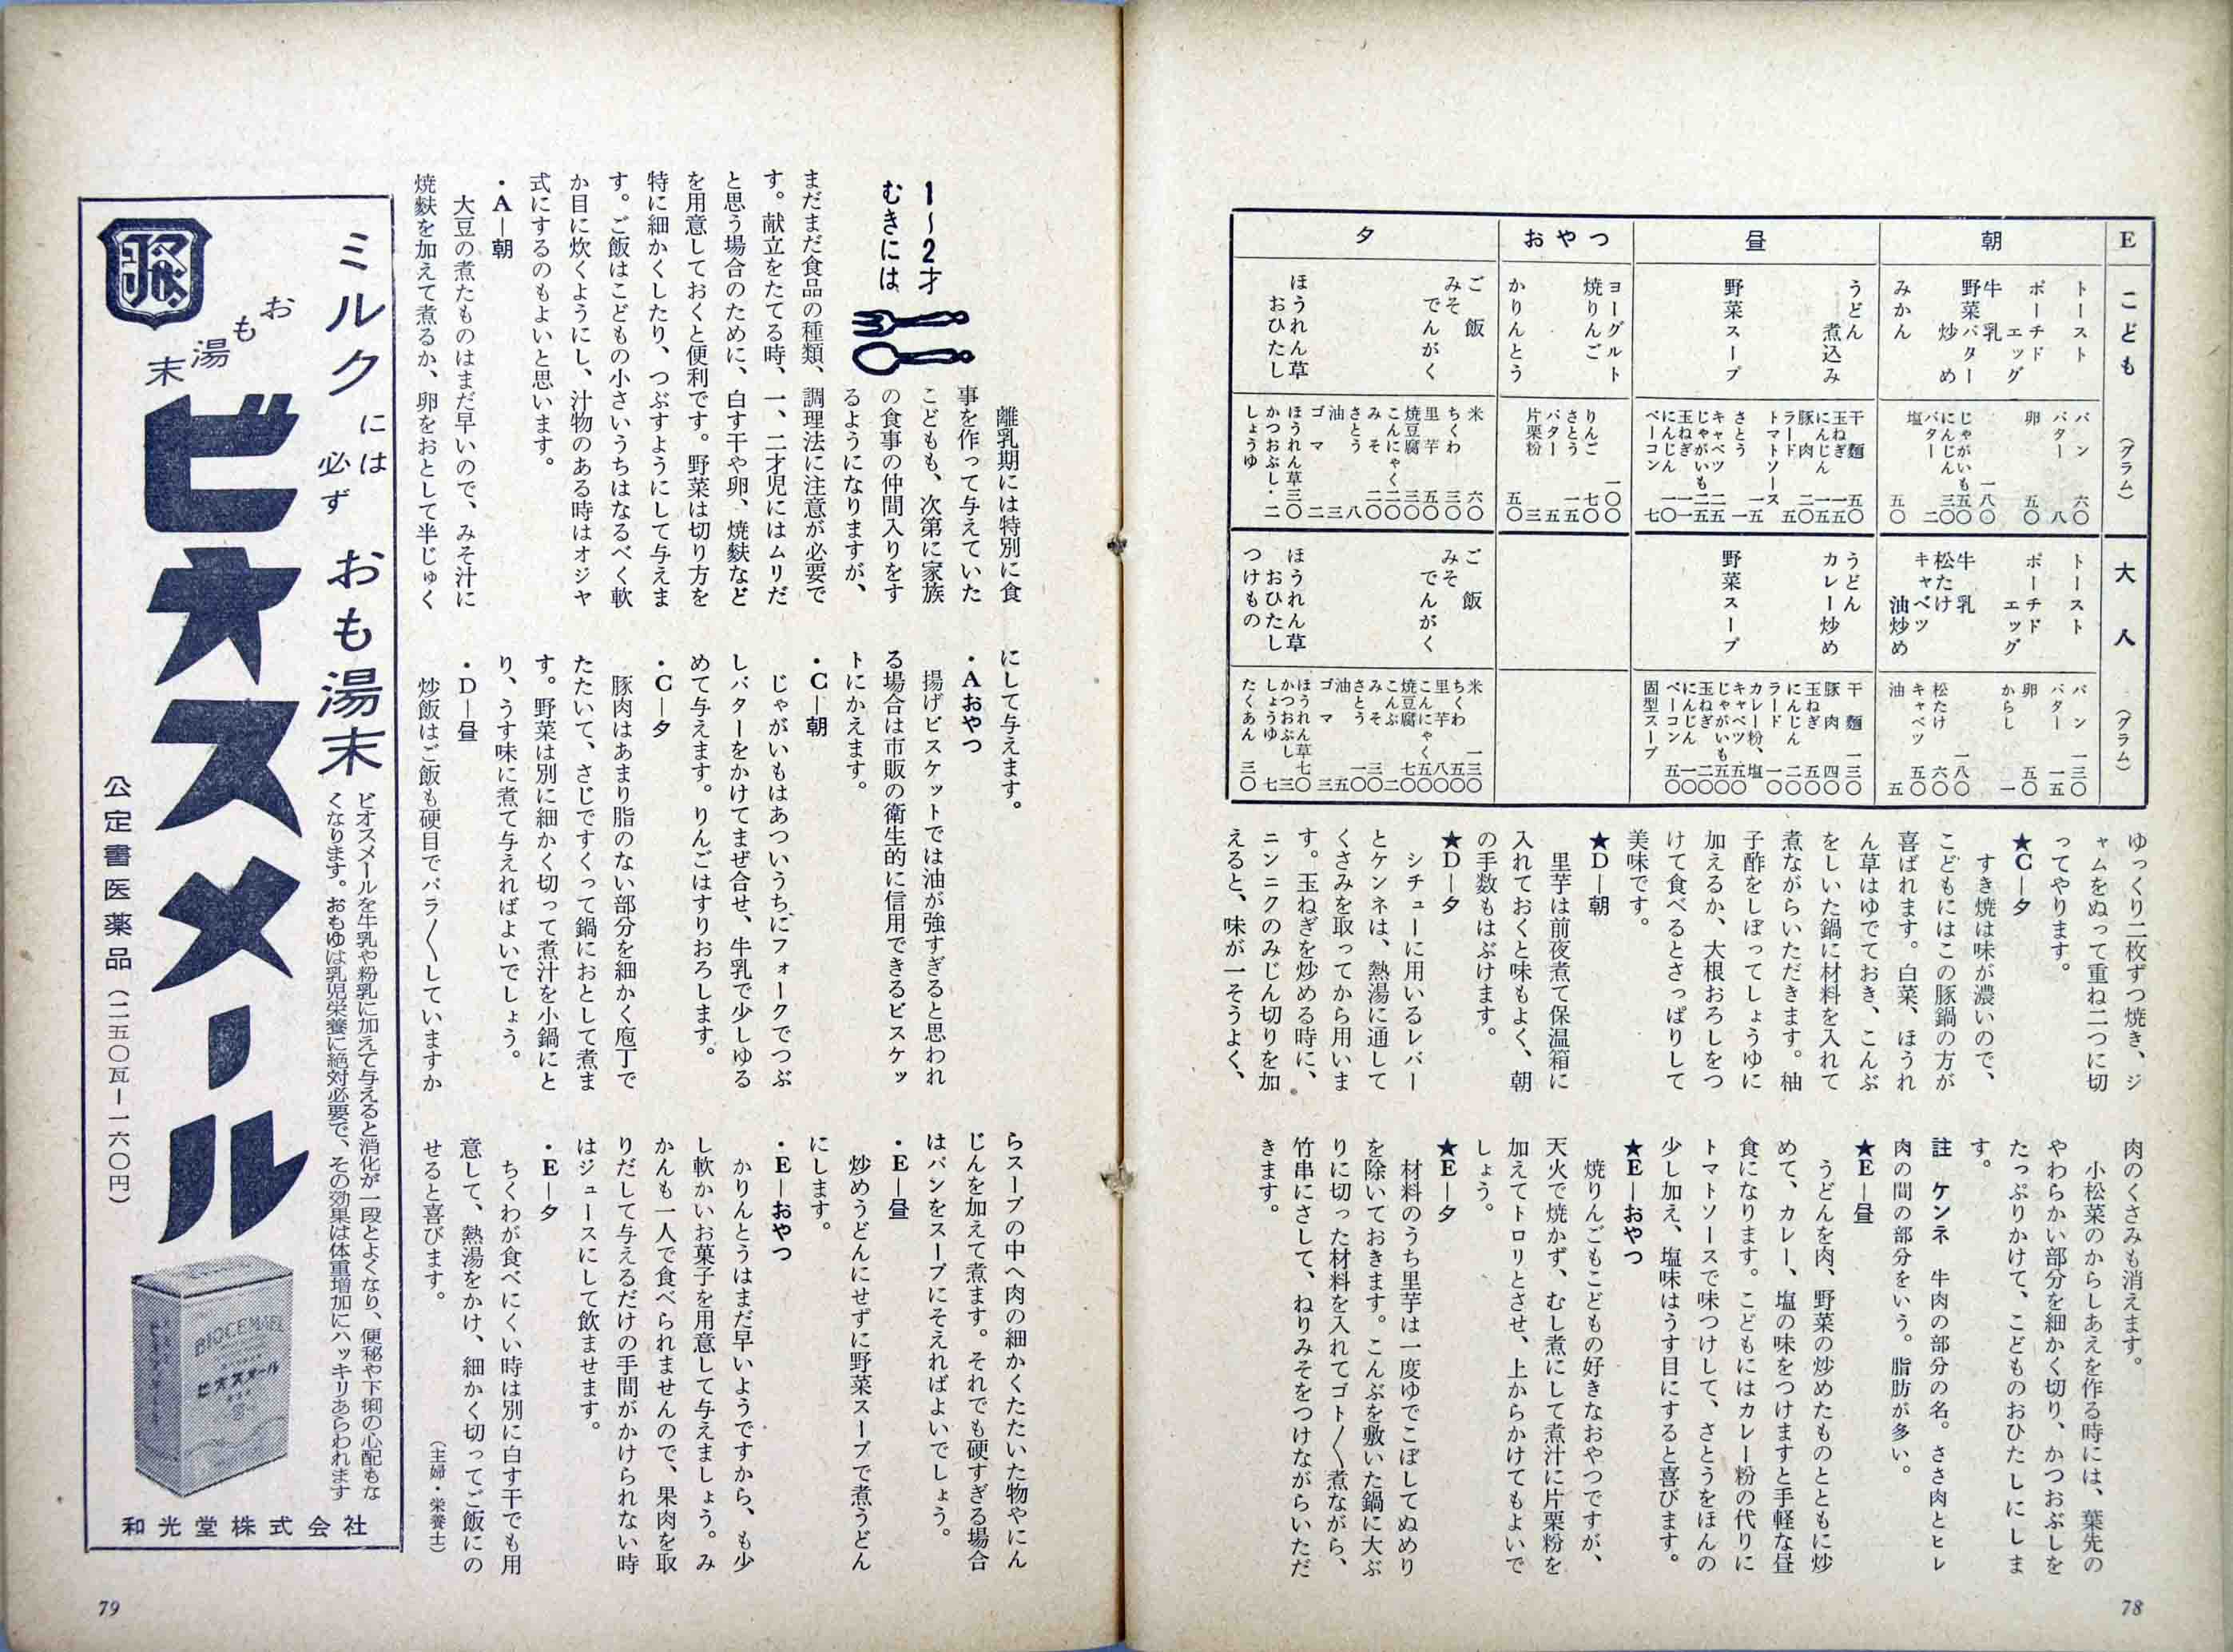 E
こども
(グラム)
大人
(グラム)
朝
トースト
ポーチド
エッグ
牛乳
野菜バター
炒め
みかん
パン 六〇
バター 八
卵 五〇
一八〇
じゃがいも 五〇
にんじん 三〇
バター 二
塩
五〇
トースト
ポーチド
エッグ
牛乳
松たけ
キャベツ
油炒め
パン 一三〇
バター 一五
卵 五〇
からし 一
一八〇
松たけ 六〇
キャベツ 五〇
油 五
昼
うどん
煮込み
野菜スープ
干麺 五〇
玉ねぎ 一五
にんじん 一五
豚肉 二〇
ラード 五
トマトソース
さとう
キャベツ
じゃがいも
玉ねぎ
にんじん
ベーコン
うどん
カレー炒め
野菜スープ
干麺 一三〇
豚肉 四〇
玉ねぎ 五〇
にんじん 二〇
ラード 一〇
カレー粉、塩
キャベツ 五〇
じゃがいも 五〇
玉ねぎ 二〇
にんじん 一〇
ベーコン 一〇
固型スープ
おやつ
ヨーグルト
焼りんご
かりんとう
一〇〇
りんご 七〇
さとう 一五
バター 五
片栗粉 三
五〇
夕
ご飯
みそ
でんがく
ほうれん草
おひたし
米 六〇
ちくわ 三〇
里芋 五〇
焼豆腐 三〇
こんにゃく 二〇
みそ 二〇
さとう 八
油 三
ゴマ 二
ほうれん草 三〇
かつおぶし・二
しょうゆ
ご飯
みそ
でんがく
ほうれん草
おひたし
つけもの
米 一三〇
ちくわ 五〇
里芋 八〇
こんにゃく 五〇
焼豆腐 七〇
こんぶ 二
みそ 三〇
さとう 一五
油 五
ゴマ 三
ほうれん草 七〇
かつおぶし 三
しょうゆ 七
たくあん 三〇
ゆっくり二枚ずつ焼き、ジ
ャムをぬって重ね二つに切
ってやります。
★C—夕
すき焼は味が濃いので、
こどもにはこの豚鍋の方が
喜ばれます。白菜、ほうれ
ん草はゆでておき、こんぶ
をしいた鍋に材料を入れて
煮ながらいただきます。柚
子酢をしぼってしょうゆに
加えるか、大根おろしをつ
けて食べるとさっぱりして
美味です。
★D—朝
里芋は前夜煮て保温箱に
入れておくと味もよく、朝
の手数もはぶけます。
★D—夕
シチューに用いるレバー
とケンネは、熱湯に通して
くさみを取ってから用いま
す。玉ねぎを炒める時に、
ニンニクのみじん切りを加
えると、味が一そうよく、
肉のくさみも消えます。
小松菜のからしあえを作る時には、葉先の
やわらかい部分を細かく切り、かつおぶしを
たっぷりかけて、こどものおひたしにしま
す。
註 ケンネ 牛肉の部分の名。ささ肉とヒレ
肉の間の部分をいう。脂肪が多い。
★E—昼
うどんを肉、野菜の炒めたものとともに炒
めて、カレー、塩の味をつけますと手軽な昼
食になります。こどもにはカレー粉の代りに
トマトソースで味つけして、さとうをほんの
少し加え、塩味はうす目にすると喜びます。
★E—おやつ
焼りんごもこどもの好きなおやつですが、
天火で焼かず、むし煮にして煮汁に片栗粉を
加えてトロリとさせ、上からかけてもよいで
しょう。
★E—夕
材料のうち里芋は一度ゆでこぼしてぬめり
を除いておきます。こんぶを敷いた鍋に大ぶ
りに切った材料を入れてゴト〳〵煮ながら、
竹串にさして、ねりみそをつけながらいただ
きます。
78
1〜2才
むきには
離乳期には特別に食
事を作って与えていた
こどもも、次第に家族
の食事の仲間入りをす
るようになりますが、
まだまだ食品の種類、調理法に注意が必要で
す。献立をたてる時、一、二才児にはムリだ
と思う場合のために、白す干や卵、焼麩など
を用意しておくと便利です。野菜は切り方を
特に細かくしたり、つぶすようにして与えま
す。ご飯はこどもの小さいうちはなるべく軟
か目に炊くようにし、汁物のある時はオジヤ
式にするのもよいと思います。
・A—朝
大豆の煮たものはまだ早いので、みそ汁に
焼麩を加えて煮るか、卵をおとして半じゅく
にして与えます。
・Aおやつ
揚げビスケットでは油が強すぎると思われ
る場合は市販の衛生的に信用できるビスケッ
トにかえます。
・C—朝
じゃがいもはあついうちにフォークでつぶ
しバターをかけてまぜ合せ、牛乳で少しゆる
めて与えます。りんごはすりおろします。
・C—夕
豚肉はあまり脂のない部分を細かく庖丁で
たたいて、さじですくって鍋におとして煮ま
す。野菜は別に細かく切って煮汁を小鍋にと
り、うす味に煮て与えればよいでしょう。
・D—昼
炒飯はご飯も硬目でパラ〳〵していますか
らスープの中へ肉の細かくたたいた物やにん
じんを加えて煮ます。それでも硬すぎる場合
はパンをスープにそえればよいでしょう。
・E—昼
炒めうどんにせずに野菜スープで煮うどん
にします。
・E—おやつ
かりんとうはまだ早いようですから、も少
し軟かいお菓子を用意して与えましょう。み
かんも一人で食べられませんので、果肉を取
りだして与えるだけの手間がかけられない時
はジュースにして飲ませます。
・E—夕
ちくわが食べにくい時は別に白す干でも用
意して、熱湯をかけ、細かく切ってご飯にの
せると喜びます。
(主婦・栄養士)
ミルクには必ずおも湯末
おも湯末
ビオスメール
ビオスメールを牛乳や粉乳に加えて与えると消化が一段とよくなり、便秘や下痢の心配もな
くなります。おもゆは乳児栄養に絶対必要で、その効果は体重増加にハッキリあらわれます
公定書医薬品(二五〇瓦—一六〇円)
BIOCEMAEL
ビオスメール
和光堂株式会社
79